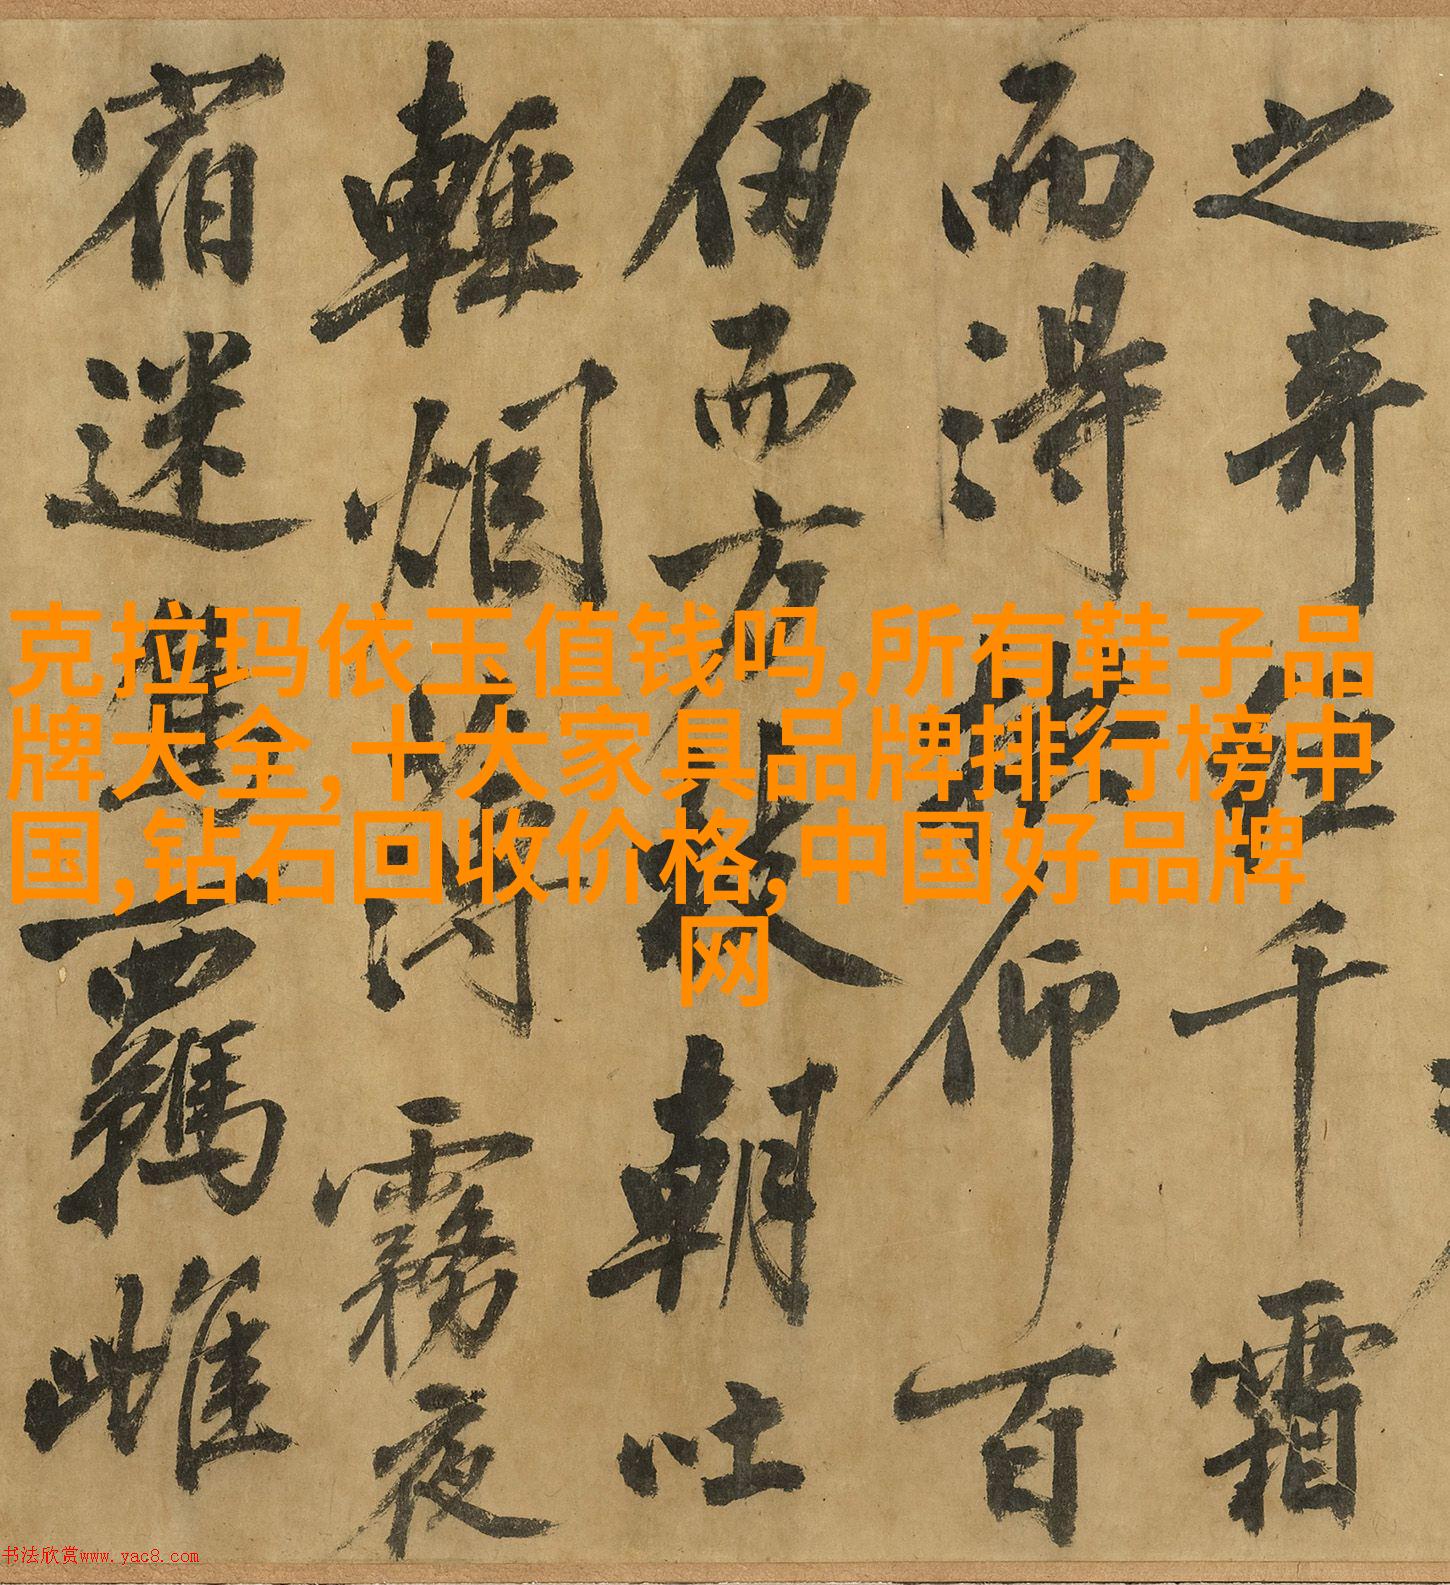 之奇経千霜
而得拱仰百
仞而方枝朝吐
輕烟霧夜
宿迷羈雌
克拉玛依玉值钱吗,所有鞋子品
牌大全,十大家具品牌排行榜中
国,钻石回收价格,中国好品牌
网
书法欣赏www.yac8.com